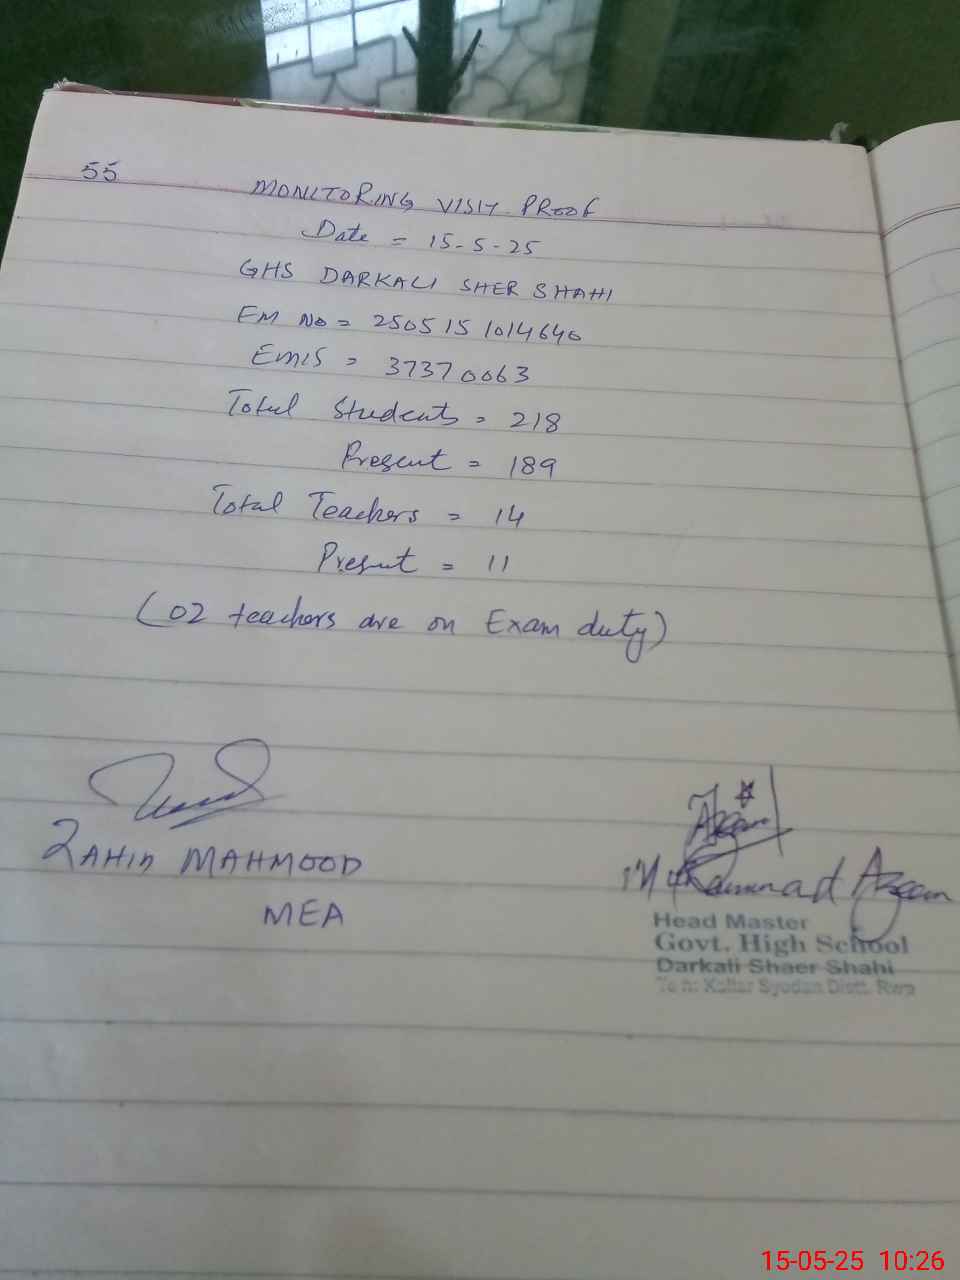 55
MONITORING VISIT PROOF
Date = 15-5-25
GHS DARKALI SHER SHAHI
EM No = 2505151014640
EMIS = 37370063
Total Students = 218
Present = 189
Total Teachers = 14
Present = 11
(02 teachers are on Exam duty)
ZAHID MAHMOOD
MEA
Azeem
Muhammad Azeem
Head Master
Govt. High School
Darkali Shaer Shahi
Teh: Kallar Syedan Distt. Rwp
15-05-25 10:26